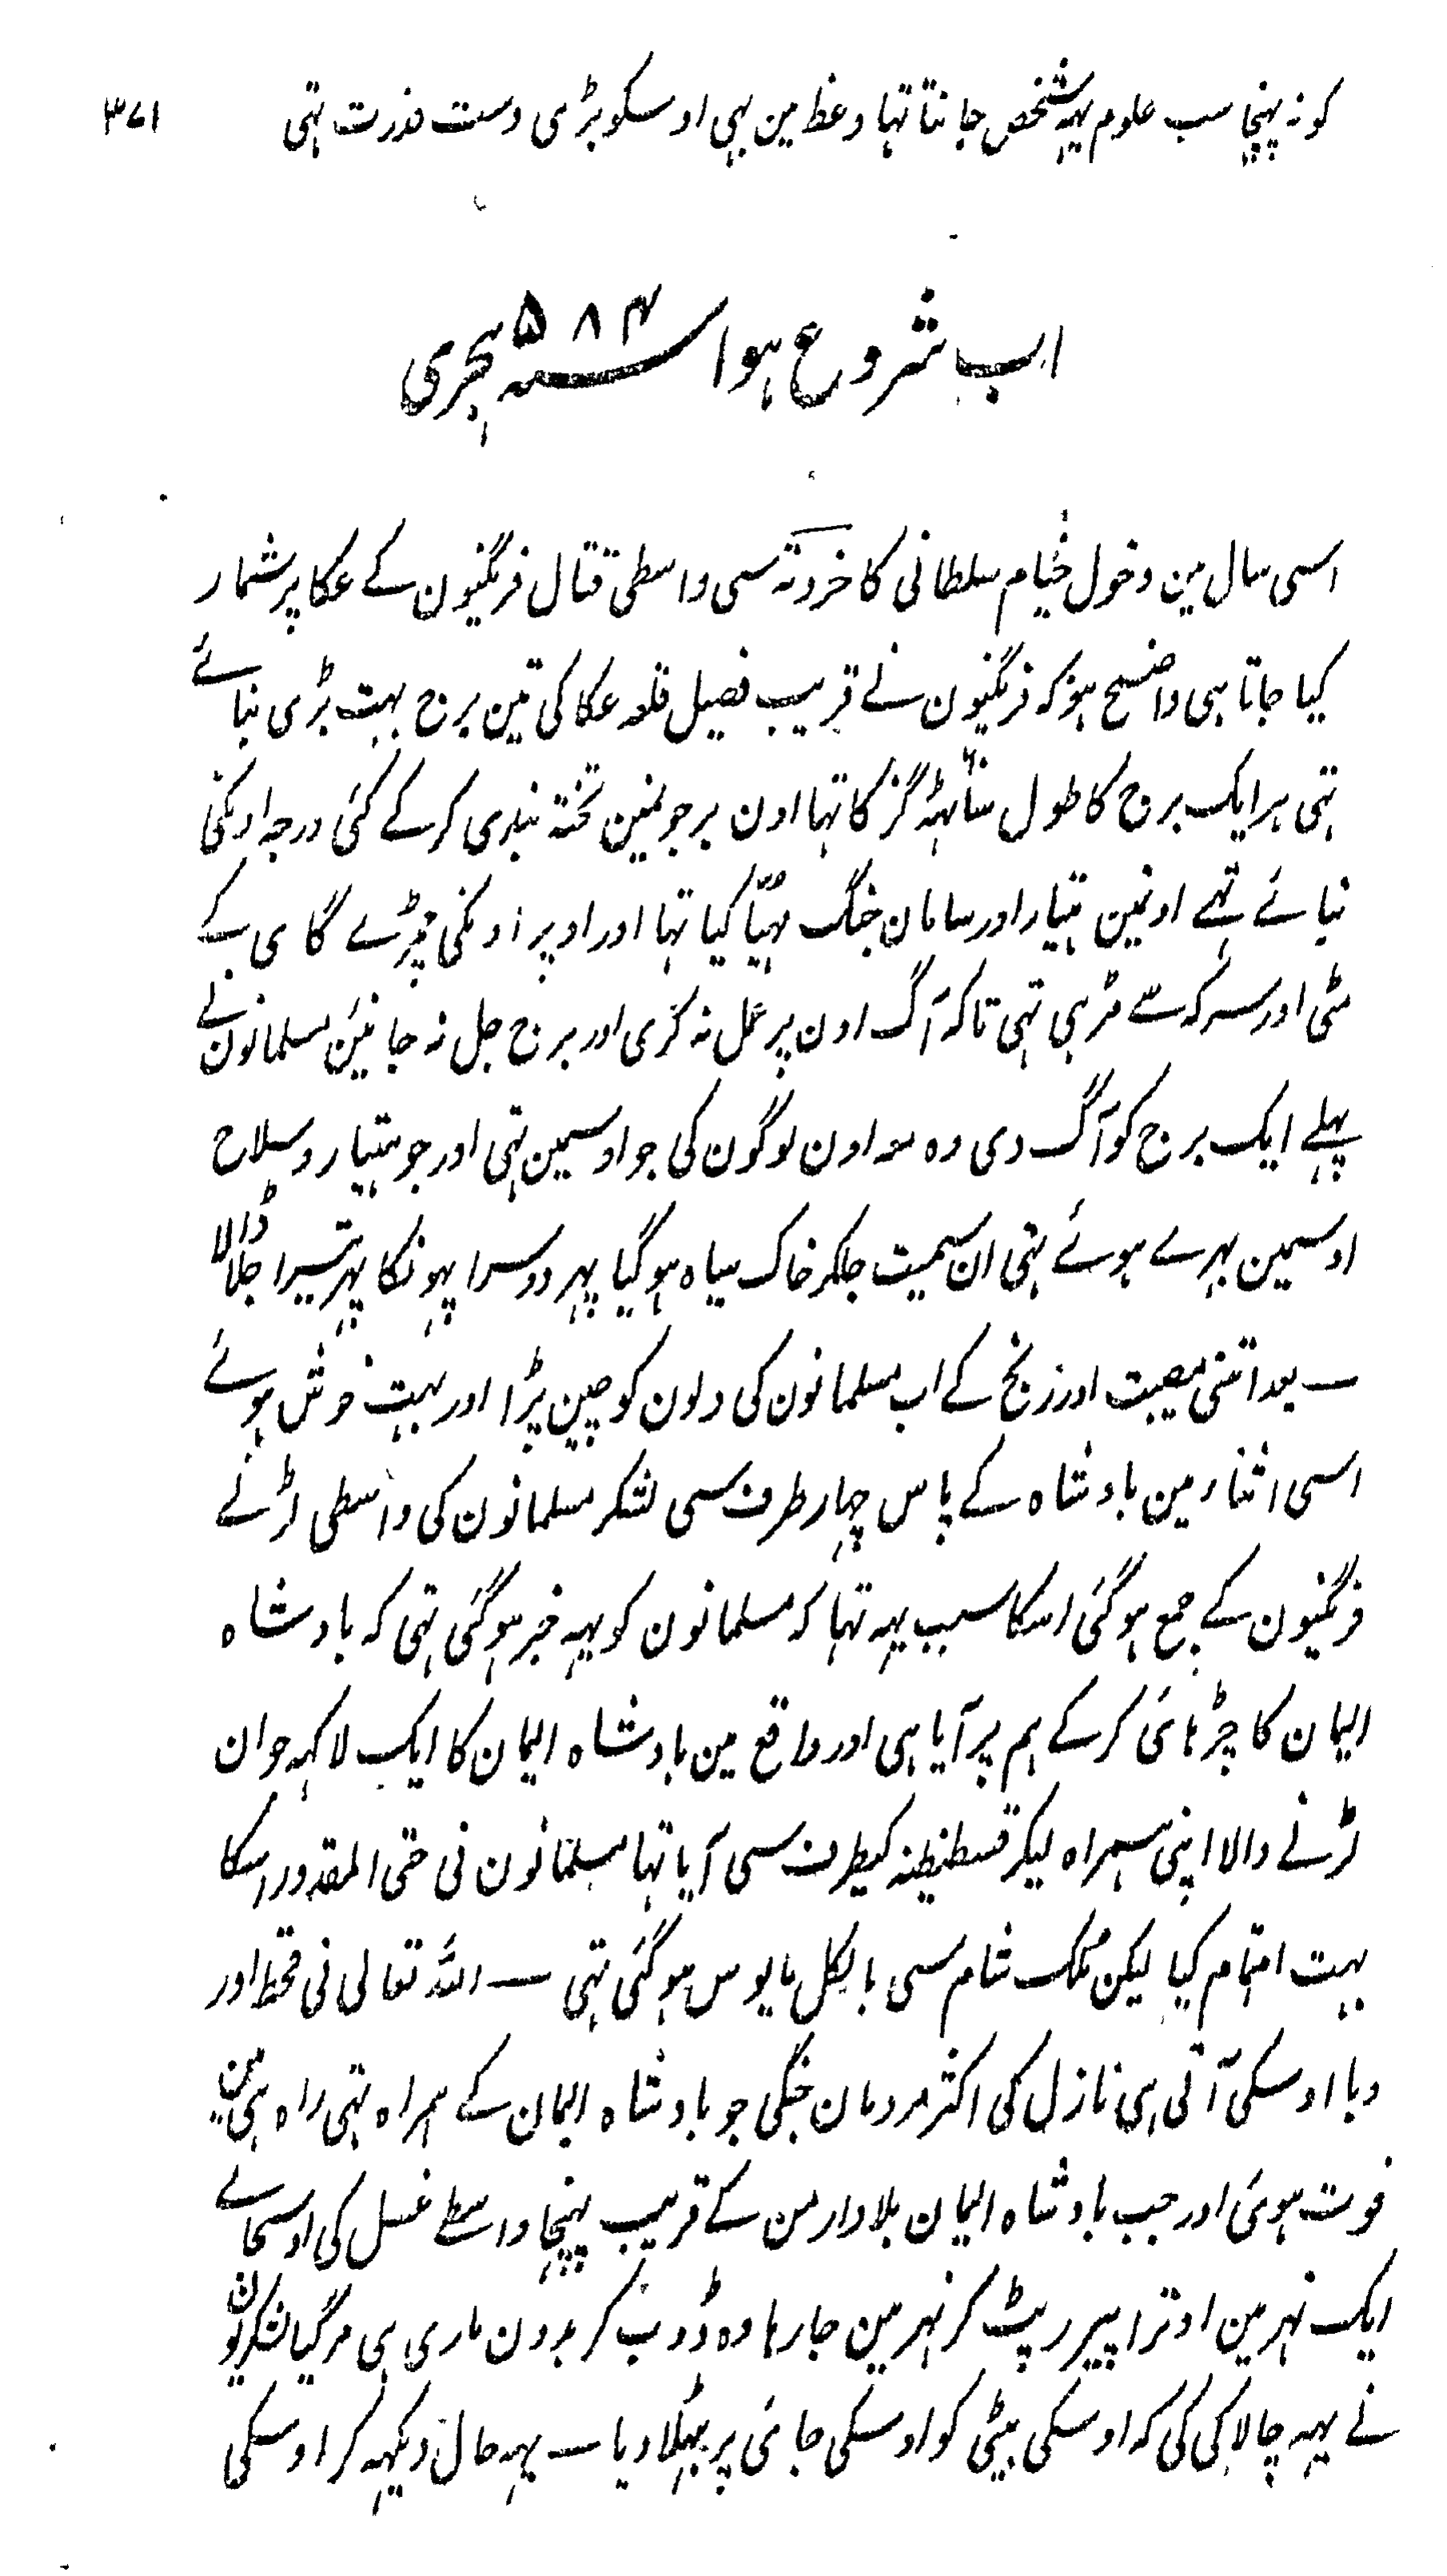 ۳۷۱
کو نہ پہنچا سب علوم یہہ شخص جانتا تہا وعظ مین بہی اوسکو بڑی دست قدرت تہی
اب شروع ہوا سنہ ۵۸۴ ہجری
اسی سال مین دخول خیام سلطانی کا خروبہ سی واسطی قتال فرنگیون کے عکا پر شمار
کیا جاتا ہی واضح ہو کہ فرنگیون نے قریب فصیل قلعہ عکا کی تین برج بہت بڑی بنائے
تہی ہر ایک برج کا طول ساٹہہ گز کا تہا اون برجونمین تختہ بندی کر کے کئی درجہ اونکی
بنائے تہے اونمین ہتیار اور سامان جنگ مہیّا کیا تہا اور اوپر اونکی چمڑے گای کے
مٹی اور سرکہ سے مڑہی تہی تاکہ آگ اون پر عمل نہ کری اور برج جل نہ جائین مسلمانون نے
پہلے ایک برج کو آگ دی وہ معہ اون لوگون کی جو اوسمین تہی اور جو ہتیار و سلاح
اوسمین بہرے ہوئے تہی ان سمیت جلکر خاک سیاہ ہو گیا پہر دوسرا پہونکا پہر تیسرا جلا ڈالا
۔ بعد اتنی مصیبت اور رنج کے اب مسلمانون کی دلون کو چین پڑا اور بہت خوش ہوئے
اسی اثناء مین بادشاہ کے پاس چہار طرف سی لشکر مسلمانون کی واسطی لڑنے
فرنگیون کے جمع ہو گئی اسکا سبب یہہ تہا کہ مسلمانون کو یہہ خبر ہو گئی تہی کہ بادشاہ
المان کا چڑہائی کر کے ہم پر آیا ہی اور واقع مین بادشاہ المان کا ایک لاکہہ جوان
لڑنے والا اپنی ہمراہ لیکر قسطنطنیہ کیطرف سی آیا تہا مسلمانون نی حتی المقدور اسکا
بہت اہتمام کیا لیکن ملک شام سی بالکل مایوس ہو گئی تہی ۔ اللہ تعالی نی قحط اور
وبا اوسکی آتی ہی نازل کی اکثر مردمان جنگی جو بادشاہ المان کے ہمراہ تہی راہ ہی مین
فوت ہوئی اور جب بادشاہ المان بلاد ارمن کے قریب پہنچا واسطے غسل کی اوسجائے
ایک نہر مین اوترا پیر رپٹ کر نہر مین جا رہا وہ ڈوب کر بدون ماری ہی مر گیا لشکریون
نے یہہ چالاکی کی کہ اوسکی بیٹی کو اوسکی جائی پر بہٹلا دیا ۔ یہہ حال دیکہہ کر اوسکی